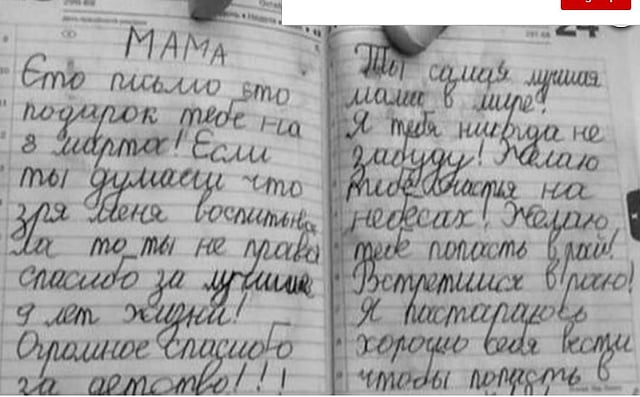 МАМА
Ето письмо ето
подарок тебе на
8 марта! Если
ты думаеш что
зря меня воспитыва
ла то ты не права
спасибо за лучшие
9 лет жизни!
Огромное спасибо
за детство!!!
24
Ты самая лучшая
мама в мире!
Я тебя никогда не
забуду! Желаю
тебе счастья на
небесах! Желаю
тебе попасть в рай!
Встретимся в раю!
Я постараюсь
хорошо себя вести
чтобы попасть в